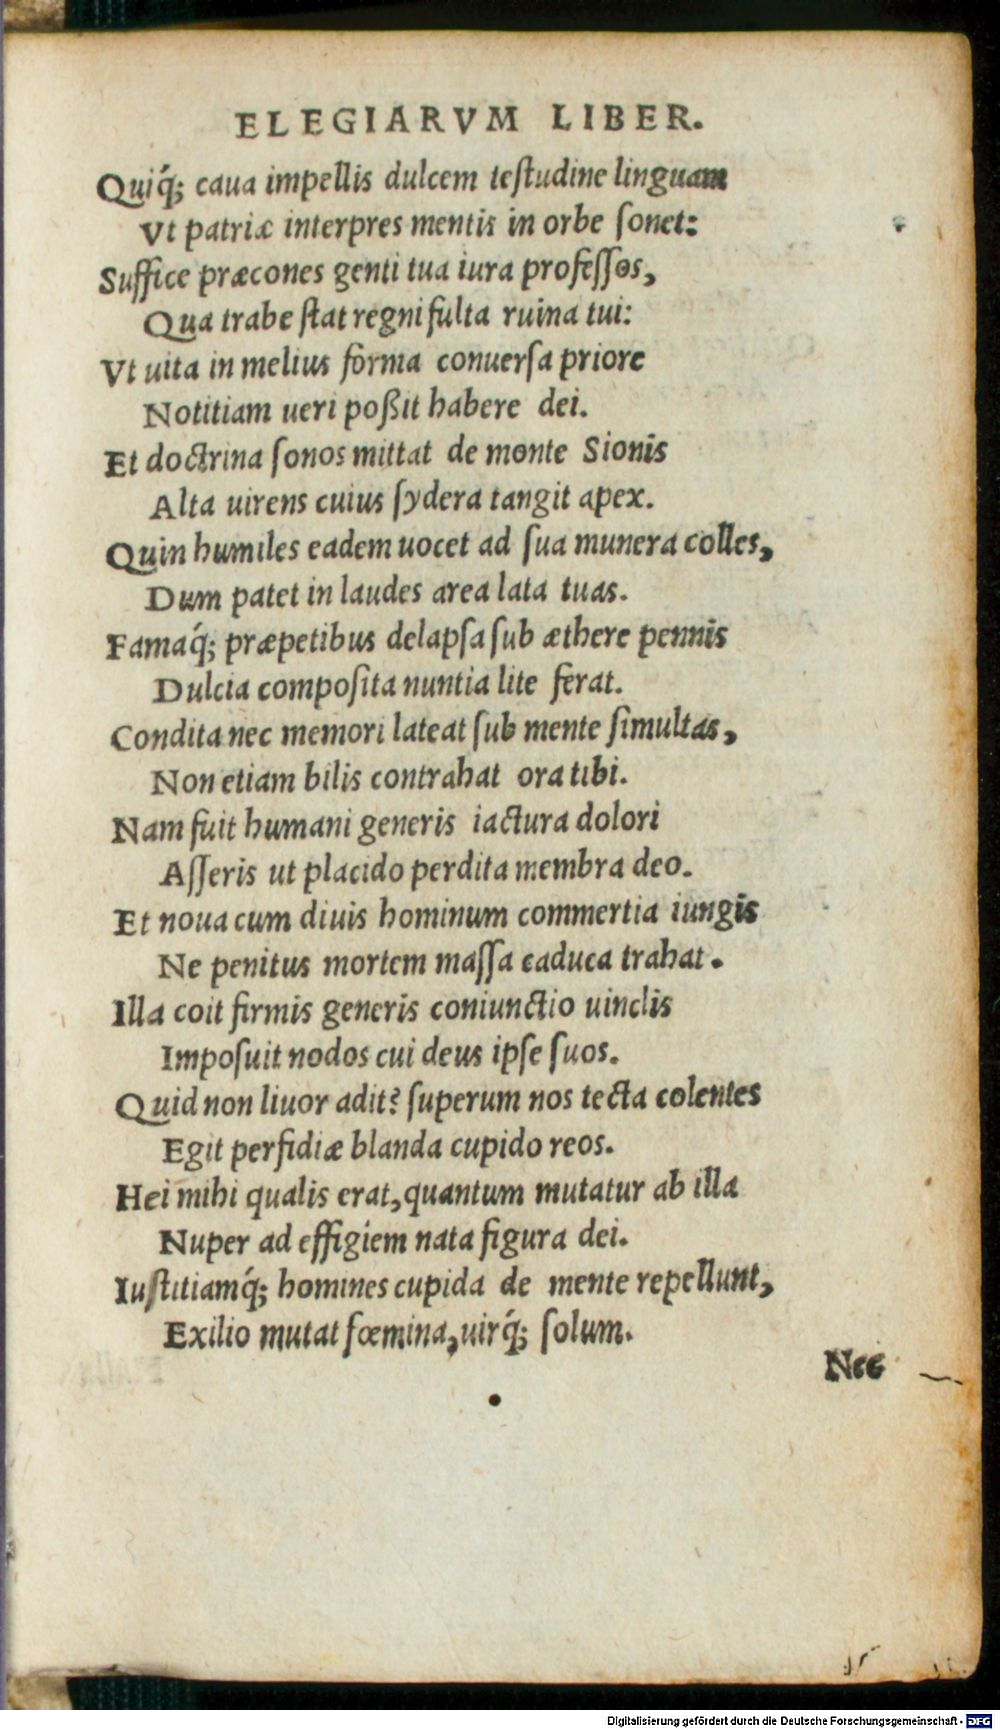 ELEGIARVM LIBER.
Quiq́; caua impellis dulcem testudine linguam
Vt patriæ interpres mentis in orbe sonet:
Suffice præcones genti tua iura professos,
Qua trabe stat regni fulta ruina tui:
Vt uita in melius forma conuersa priore
Notitiam ueri poßit habere dei.
Et doctrina sonos mittat de monte Sionis
Alta uirens cuius sydera tangit apex.
Quin humiles eadem uocet ad sua munera colles,
Dum patet in laudes area lata tuas.
Famaq́; præpetibus delapsa sub æthere pennis
Dulcia composita nuntia lite ferat.
Condita nec memori lateat sub mente simultas,
Non etiam bilis contrahat ora tibi.
Nam fuit humani generis iactura dolori
Asseris ut placido perdita membra deo.
Et noua cum diuis hominum commertia iungis
Ne penitus mortem massa caduca trahat.
Illa coit firmis generis coniunctio uinclis
Imposuit nodos cui deus ipse suos.
Quid non liuor adit? superum nos tecta colentes
Egit perfidiæ blanda cupido reos.
Hei mihi qualis erat, quantum mutatur ab illa
Nuper ad effigiem nata figura dei.
Iustitiamq́; homines cupida de mente repellunt,
Exilio mutat fœmina, uirq́; solum.
Nec
Digitalisierung gefördert durch die Deutsche Forschungsgemeinschaft - DFG